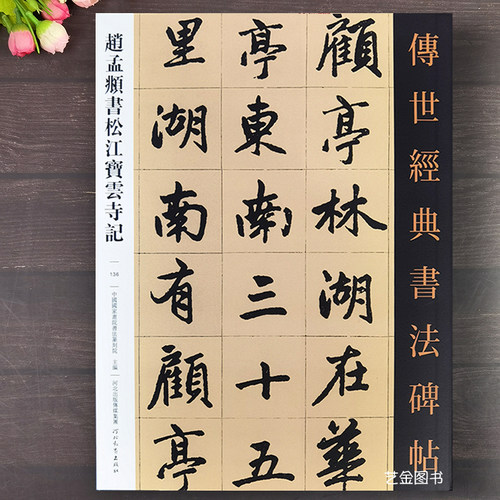 傳世經典書法碑帖
顧亭林湖在華
亭東南三十五
里湖南有顧亭
趙孟頫書松江寶雲寺記
中國國家畫院書法篆刻院 主編
河北出版傳媒集團
河北教育出版社
艺金图书